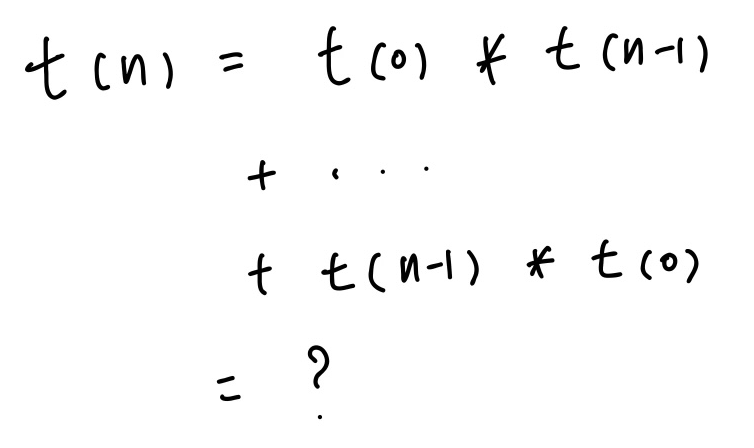 t(n) = t(0) * t(n-1)
+ . . .
+ t(n-1) * t(0)
= ?